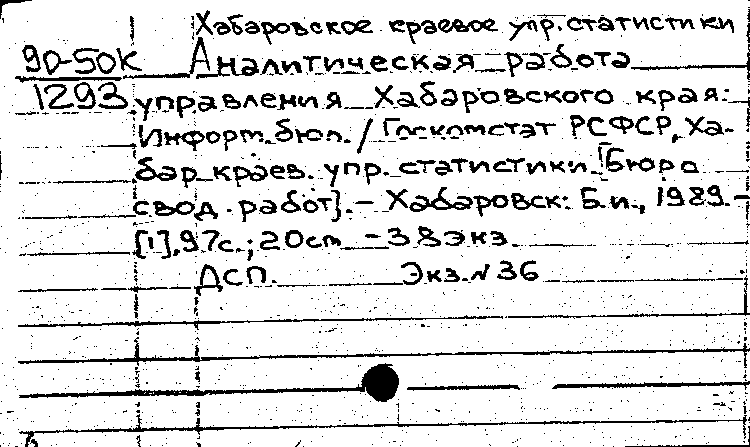 Хабаровское краевое упр. статистики
90-50К Аналитическая работа
1293 управления Хабаровского края:
Информ. бюл. / Госкомстат РСФСР, Ха-
бар. краев. упр. статистики. [Бюро
свод. работ]. - Хабаровск: Б.и., 1989. -
[1], 97с.; 20см - 38экз.
ДСП. Экз. N 36